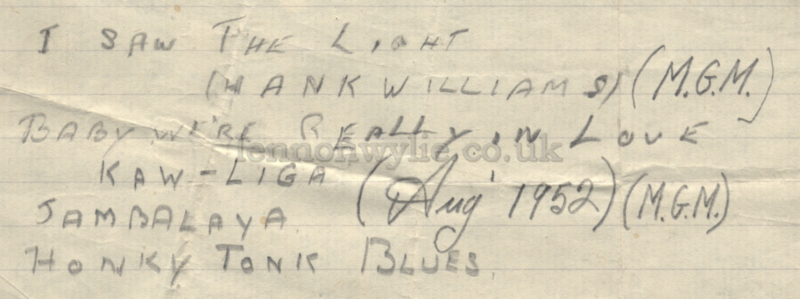 I SAW THE LIGHT
(HANK WILLIAMS) (M.G.M.)
BABY WE'RE REALLY IN LOVE
lennonwylie.co.uk
KAW-LIGA
JAMBALAYA (Aug' 1952) (M.G.M.)
HONKY TONK BLUES.